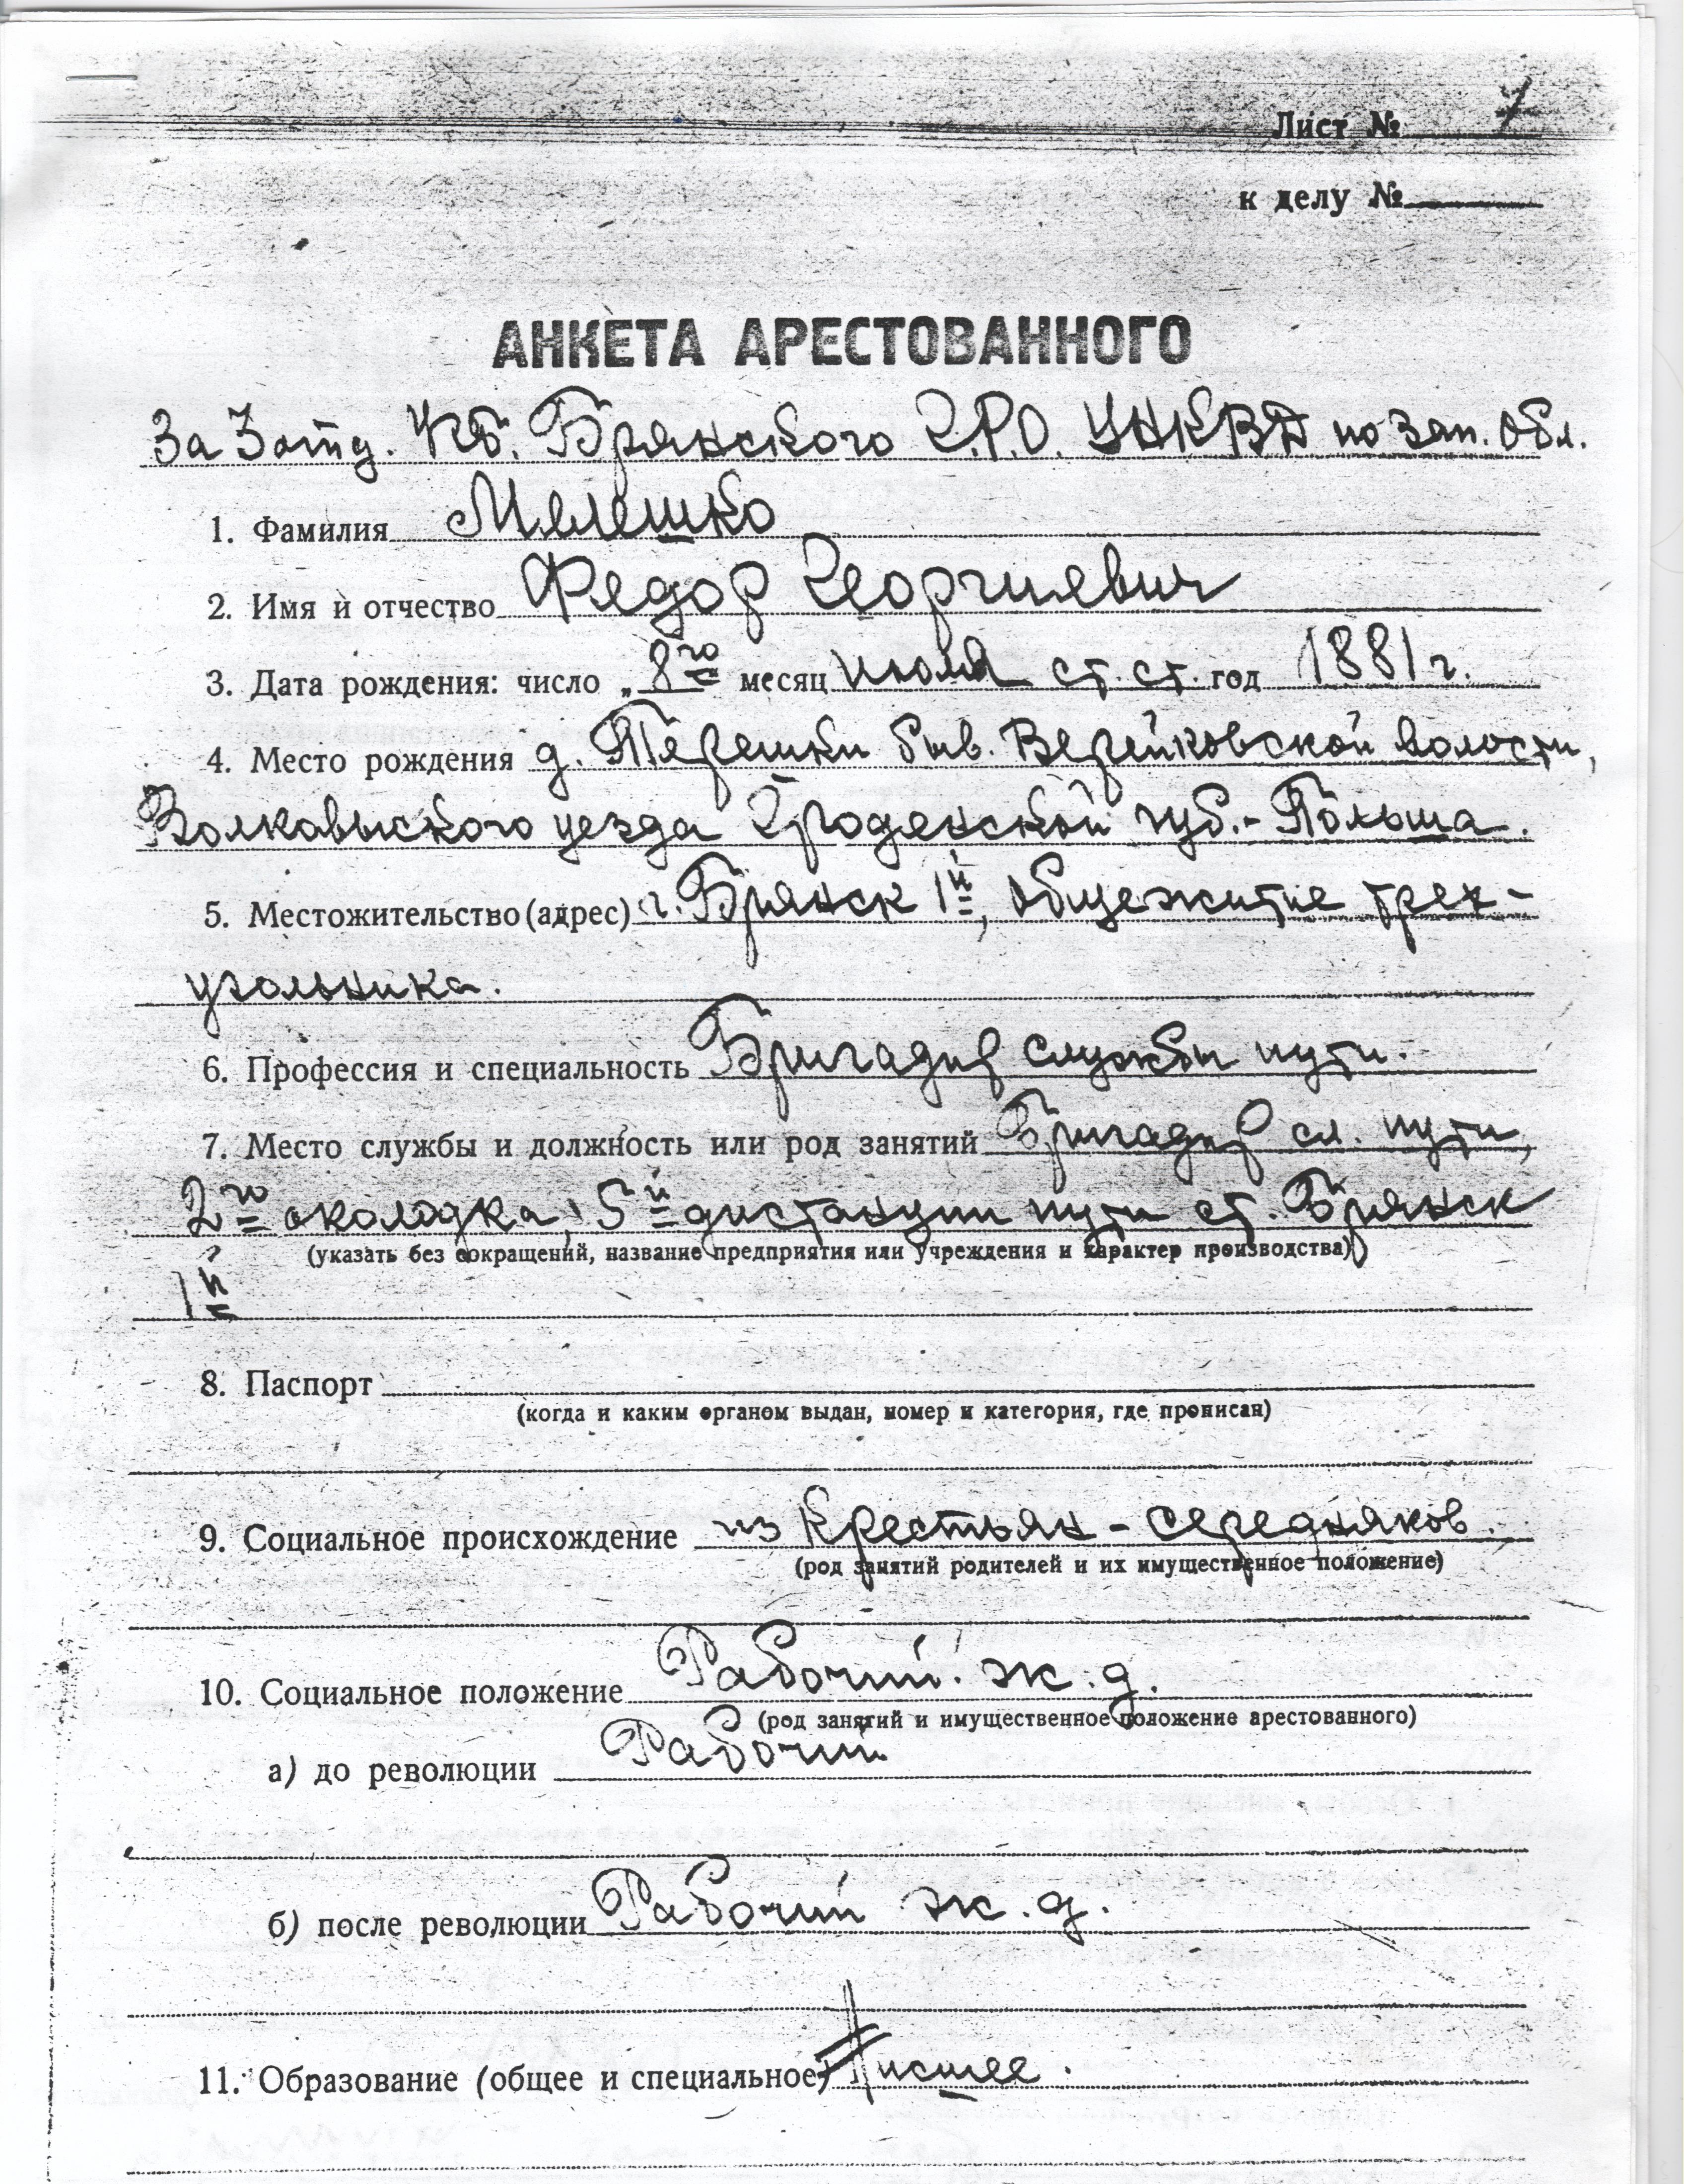 Лист № 7
к делу №
АНКЕТА АРЕСТОВАННОГО
За 3 отд. УГБ. Брянского Г.Р.О. УНКВД по Зап. Обл.
1. Фамилия Мелешко
2. Имя и отчество Федор Георгиевич
3. Дата рождения: число „8го месяц июля ст. ст. год 1881 г.
4. Место рождения д. Терешки быв. Верейковской волости,
Волкавыского уезда Гродненской губ. - Польша.
5. Местожительство (адрес) г. Брянск 1й, общежитие трех-
угольника.
6. Профессия и специальность Бригадир службы пути.
7. Место службы и должность или род занятий Бригадир сл. пути,
2го околодка, 5й дистанции пути ст. Брянск
(указать без сокращений, название предприятия или учреждения и характер производства)
1й
8. Паспорт
(когда и каким органом выдан, номер и категория, где прописан)
9. Социальное происхождение из Крестьян - середняков.
(род занятий родителей и их имущественное положение)
10. Социальное положение Рабочий ж. д.
(род занятий и имущественное положение арестованного)
а) до революции Рабочий
б) после революции Рабочий ж. д.
11. Образование (общее и специальное) Нисшее.